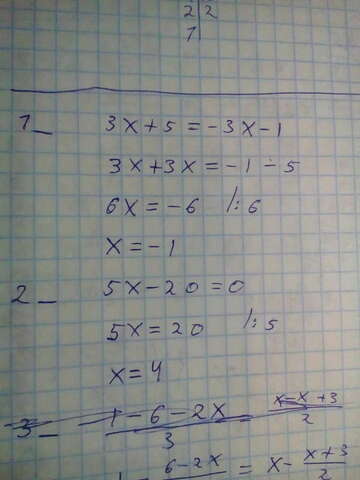 2 | 2
1 |
1_ 3x+5=-3x-1
3x+3x=-1-5
6x=-6 /:6
x=-1
2_ 5x-20=0
5x=20 /:5
x=4
3_ 1-6-2x/3 = x-x+3/2
6-2x = x- x+3/2